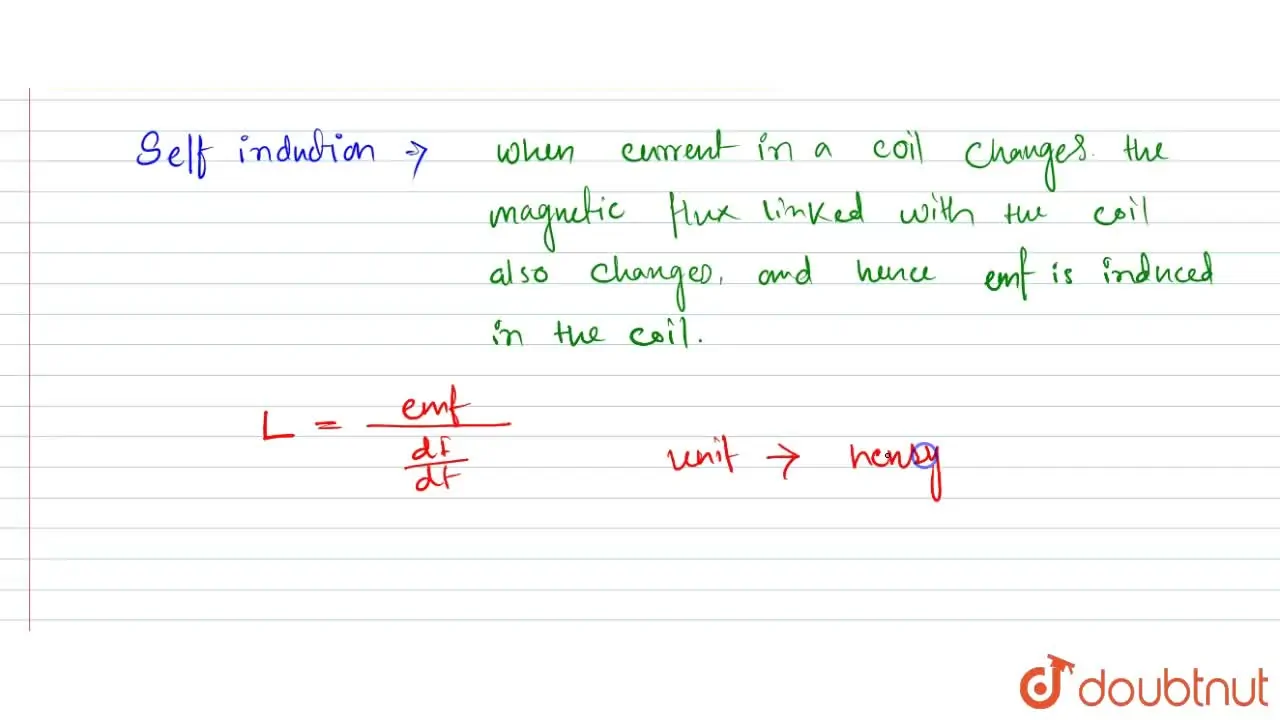 Self induction → when current in a coil changes. the
magnetic flux linked with the coil
also changes, and hence emf is induced
in the coil.
L = emf / (dI/dt)
unit → henry
doubtnut